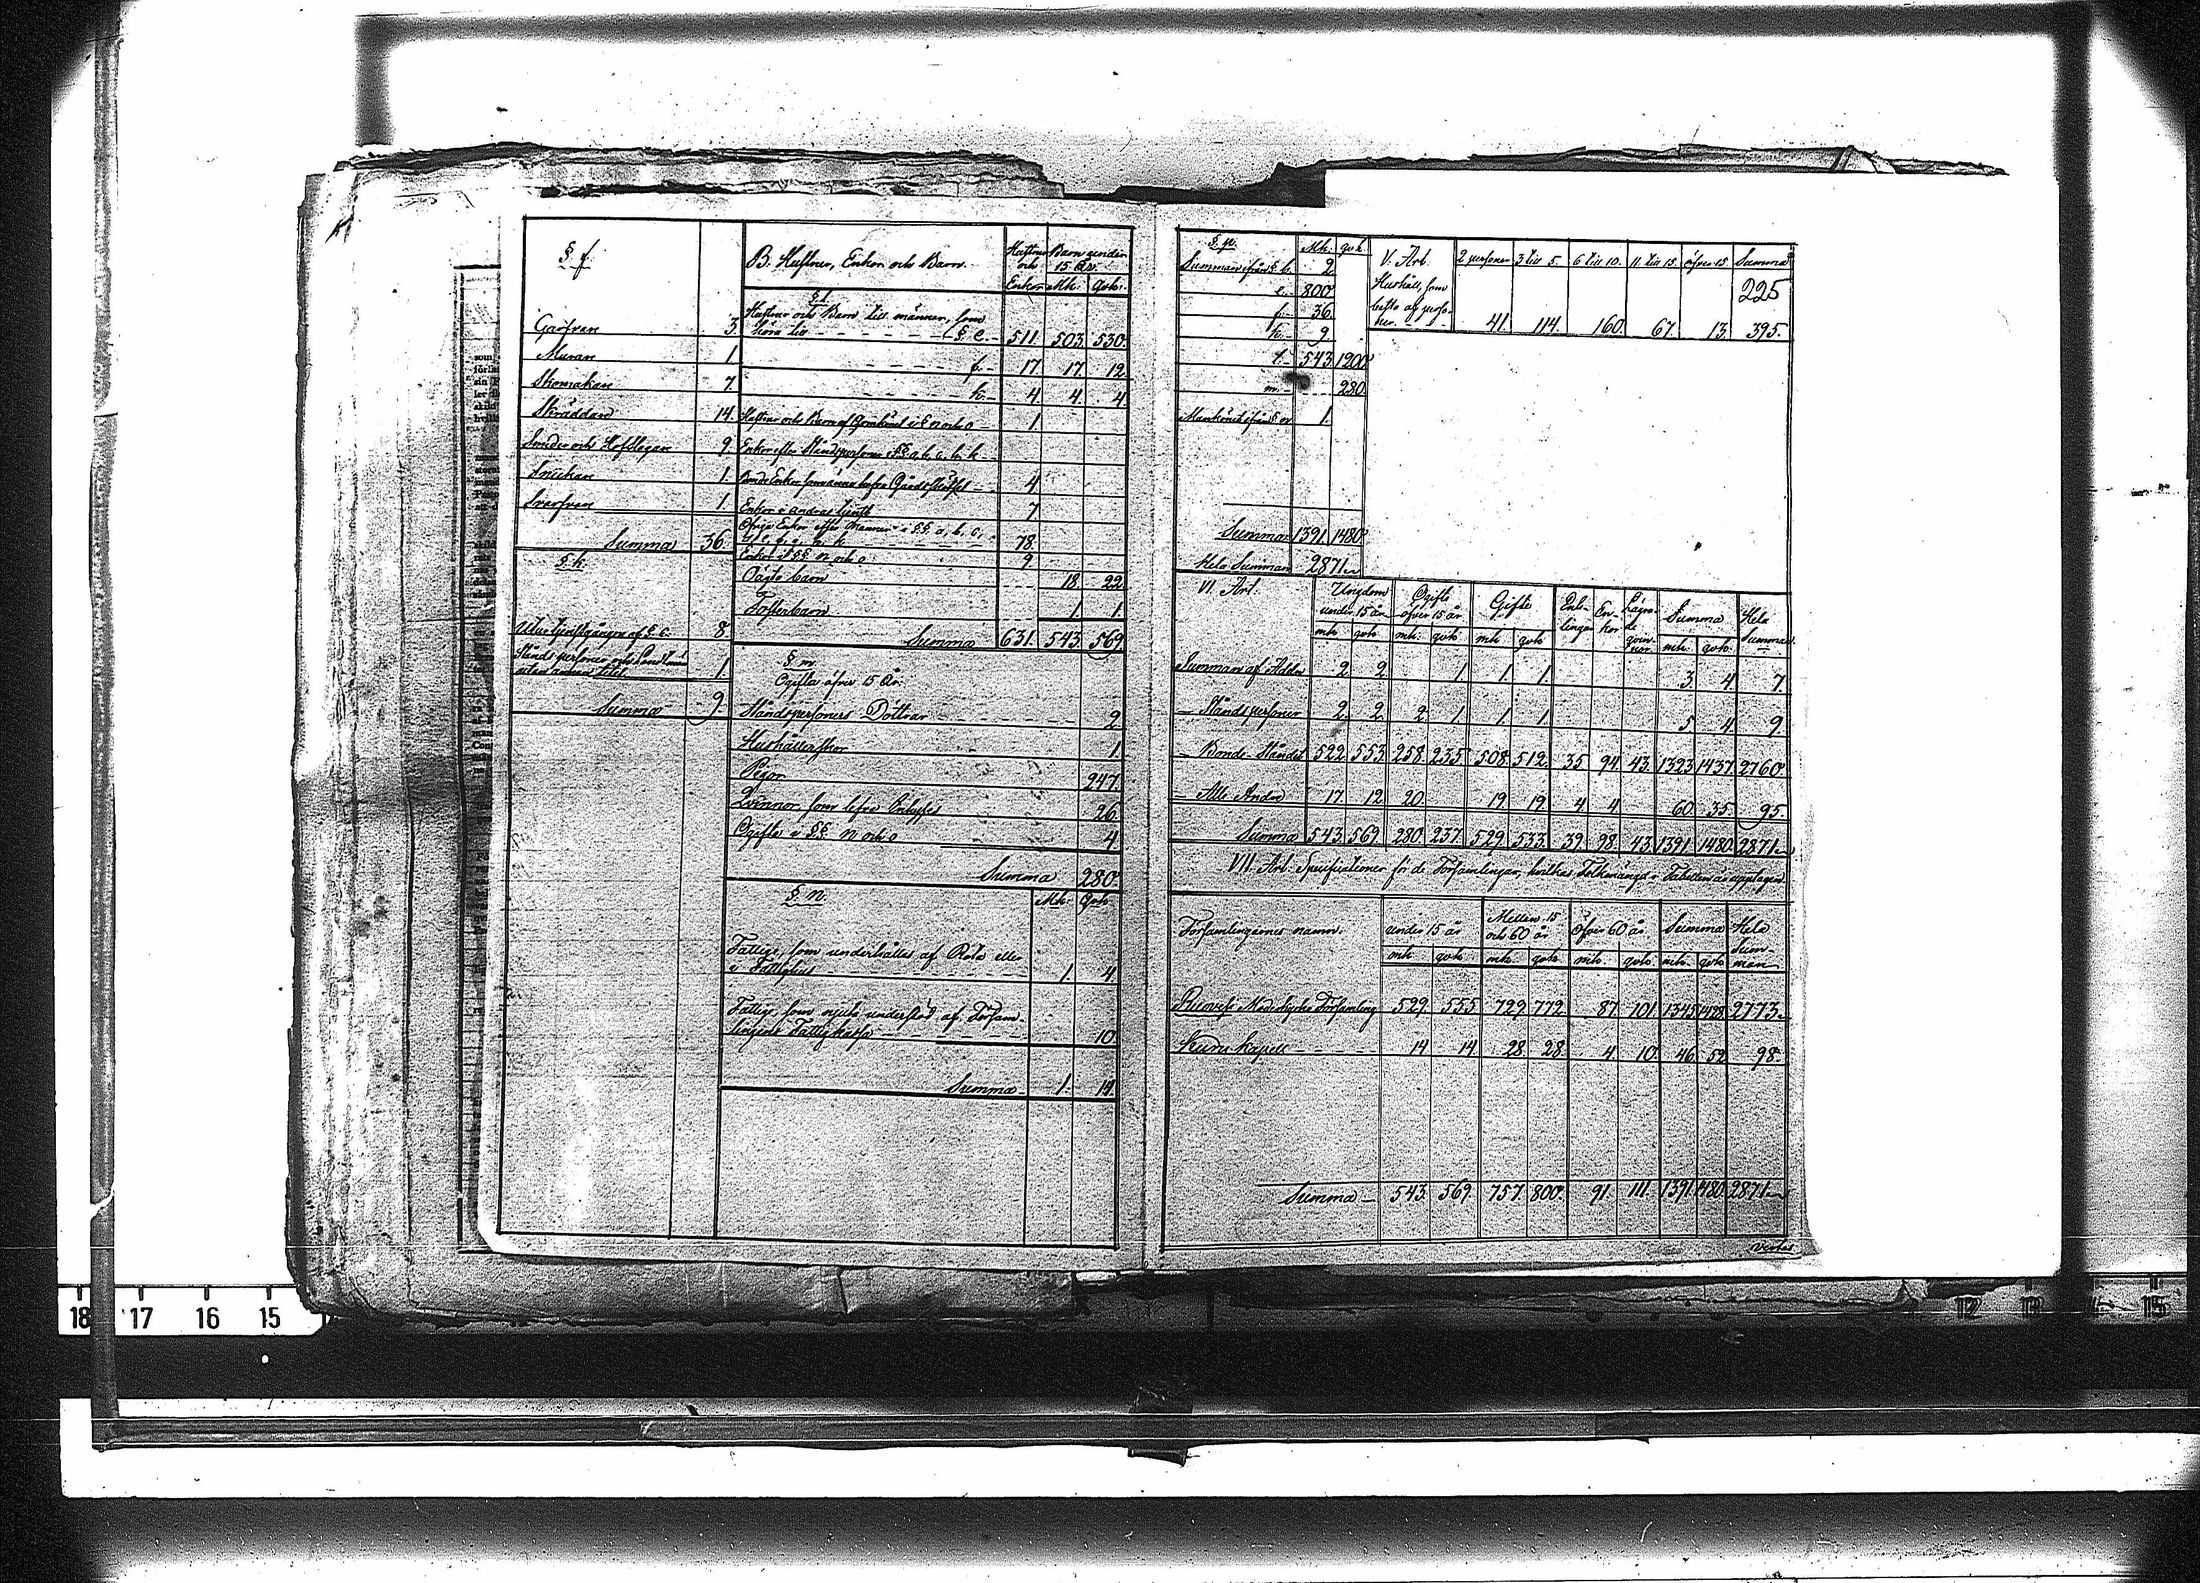 § f.
Garfvare 3
Murare 1
Skomakare 7
Skräddare 14
Smeder och Hofslagare 9
Snickare 1
Svarfvare 1
Summa 36
§ k.
Utur tjenstgångne af § c. 8
Stånds personer och
utan annan titel 1
Summa 9
B. Hustrur, Enkor och Barn. Hustrur och Enkor Barn under 15 år. Mk. Qvk.
§ l.
Hustrur och Barn till männer, som
höra till § e. 511. 503. 530.
f. 17. 17. 12.
k. 4. 4. 4.
Hustrur och Barn af i § n och o 1
Enkor efter Ståndspersoner i §§ a, b, c, h, k
Bonde Enkor som Gårdsskötsel 4
Enkor i andras tjenst 7
Öfrige Enkor efter Männer i §§ a, b, c,
78.
Enkor i §§ n och o 9
Oägta barn 18 22.
Fosterbarn 1. 1.
Summa 631. 543. 569.
§ m.
Ogifta öfver 15 år.
Ståndspersoners Döttrar 2.
Hushållerskor 1.
Pigor 247.
Qvinnor, som lefva Enhyses 26
Ogifte i §§ n och o 4
Summa 280.
§ n. Mk. Qvk.
Fattige, som underhållas af Rota eller
i Fattighus 1. 4.
Fattige, som njuta understöd af Försam-
lingens Fattig kassa 10.
Summa 1. 14.
§ p. Mk. qvk.
Summan ifrån § b. 2
e. 800
f. 36.
k. 9
l. 543. 1200.
m. 280
Mankönet ifrån § n. 1.
Summa 1391. 1480.
Hela Summan 2871.
V. Art. 2 personer 3 till 5. 6 till 10. 11 till 15. öfver 15. Summa
Hushåll, som 225
bestå af perso-
ner. 41. 114. 160. 67. 13. 395.
VI. Art. Ungdom under 15 år Ogifte öfver 15 år Gifte Enk-lingar En-kor Lägra-de qvin-nor. Summa Hela Summan.
mk. qvk. mk. qvk. mk. qvk. mk. qvk.
Summan af Adel 2 2 1 1 1 3. 4. 7.
— Ståndspersoner 2. 2. 2. 1 1 1 5 4. 9.
— Bonde-Ståndet 522. 553. 258. 235. 508. 512. 35 94. 43. 1323. 1437. 2760.
— Alle Andre 17. 12. 20. 19 19 4 4 60. 35. 95.
Summa 543. 569. 280. 237. 529. 533. 39. 98. 43. 1391. 1480. 2871.
VII. Art. Specifikationer för de Församlingar, hvilkas Folkmängd i Tabellen är upptagen.
Församlingarnes namn. under 15 år Mellan 15 och 60 år Öfver 60 år Summa Hela Sum-man
mk. qvk. mk. qvk. mk. qvk. mk. qvk.
Ruovesi Moderkyrko Församling 529. 555. 729. 772. 87. 101. 1345. 1428. 2773.
Kuru Kapell 14 14 28. 28. 4. 10. 46. 52. 98.
Summa 543. 569. 757. 800. 91. 111. 1391. 1480. 2871.
18 17 16 15
12 13 14 15